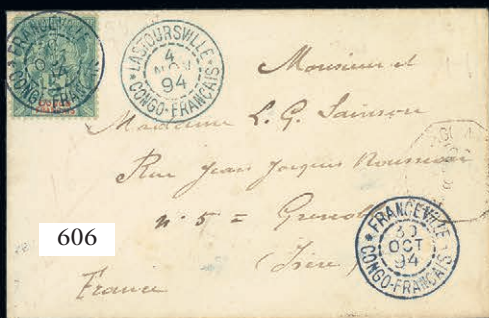 FRANCEVILLE
30
OCT
94
CONGO-FRANÇAIS
LASTOURSVILLE
4
NOV
94
CONGO-FRANÇAIS
Monsieur et
Madame L. G. Sainson
Rue Jean Jacques Rousseau
n° 5 = Grenoble
(Isère)
France
606
FRANCEVILLE
30
OCT
94
CONGO-FRANÇAIS